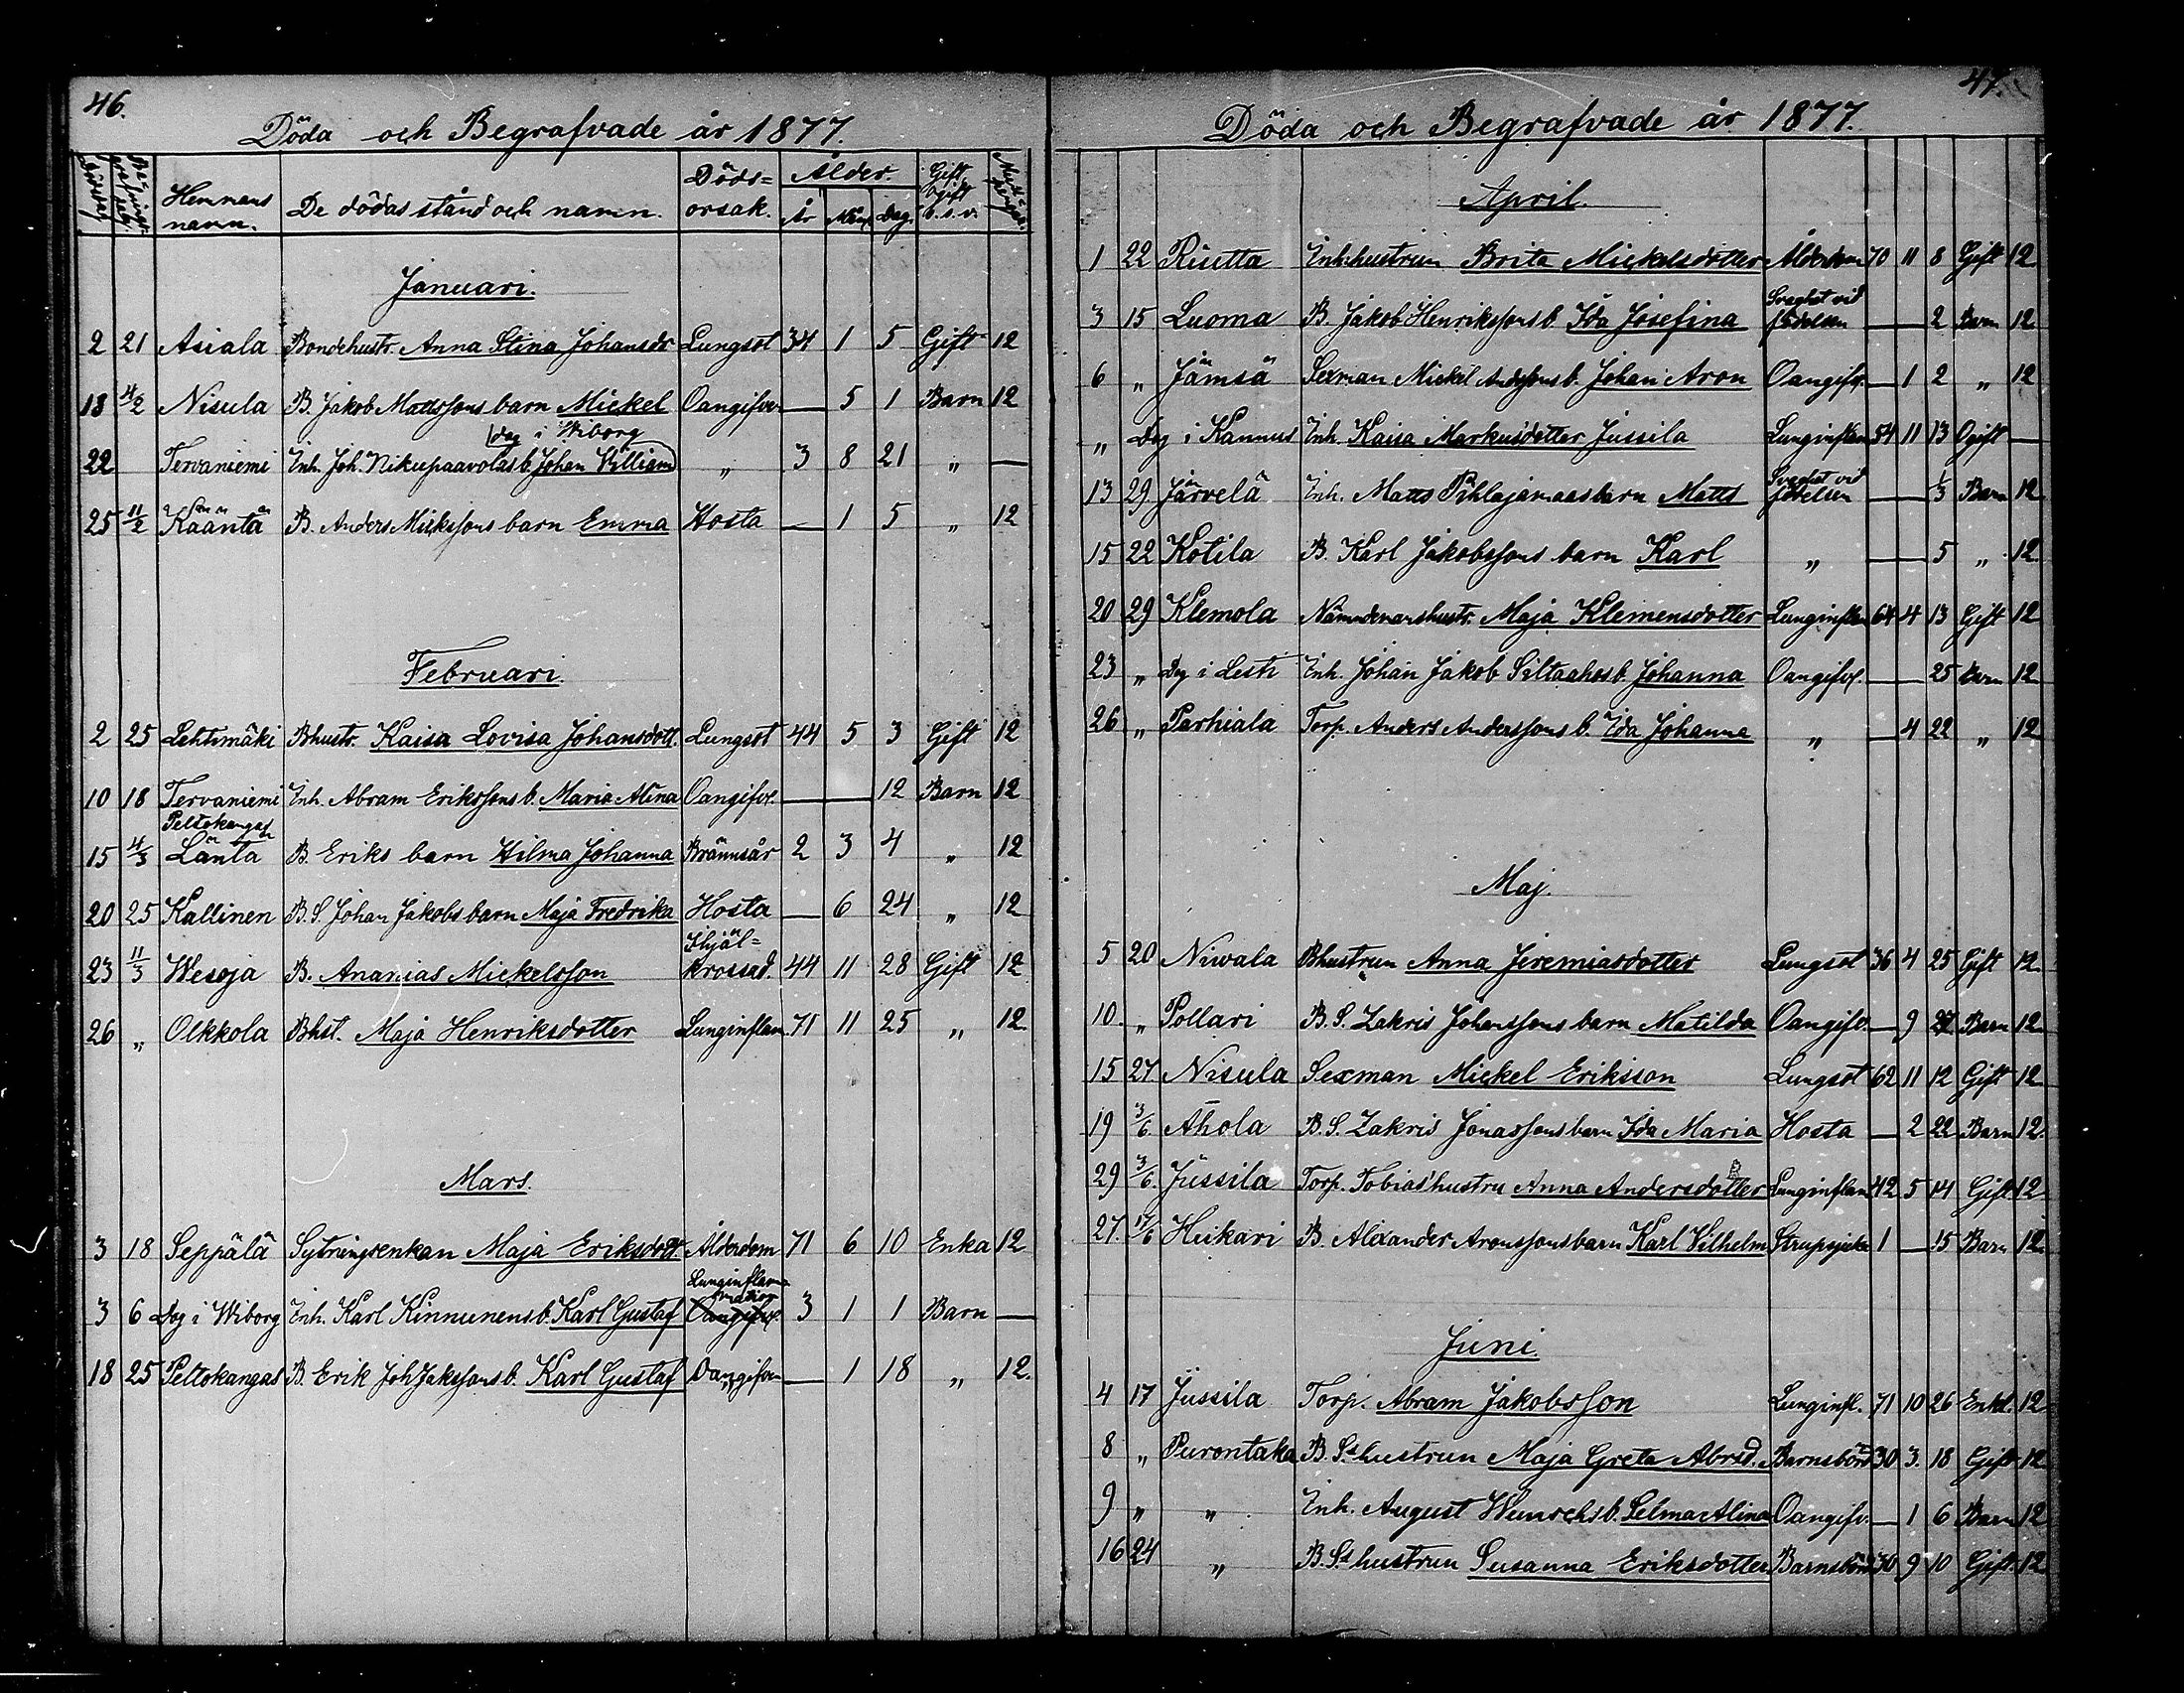 46.
Döda och Begrafvade år 1877.
Hemmans namn. De dödas stånd och namn. Döds=orsak. Ålder. År Mån Dag. Gift Ogift o.s.v.
Januari.
2 21 Asiala Bondehustr. Anna Stina Johansdr Lungsot 34 1 5 Gift 12
18 4/2 Nisula B. Jakob Mattssons barn Mickel Oangifven — 5 1 Barn 12
dog i Wiborg
22 Tervaniemi Inh. Joh. Nikupaavolas b. Johan Villiam „ 3 8 21 „ —
25 11/2 Käänta B. Anders Mickssons barn Emma Hosta — 1 5 „ 12
Februari.
2 25 Lehtimäki Bhustr. Kaisa Lovisa Johansdott. Lungsot 44 5 3 Gift 12
10 18 Tervaniemi Inh. Abram Erikssons b. Maria Alina Oangifv. — — 12 Barn 12
Peltokangas
15 4/3 Länta B. Eriks barn Hilma Johanna Brännsår 2 3 4 „ 12
20 25 Kallinen B.S. Johan Jakobs barn Maja Fredrika Hosta — 6 24 „ 12
Ihjäl=
23 11/3 Wesoja B. Ananias Mickelsson krossad. 44 11 28 Gift 12
26 „ Olkkola Bhst. Maja Henriksdotter Lunginflam 71 11 25 „ 12
Mars.
3 18 Seppälä Sytningsenkan Maja Eriksdott. Ålderdom 71 6 10 Enka 12
Lunginflam=mation
3 6 Dog i Wiborg Inh. Karl Kinnunens b. Karl Gustaf Oangifv. 3 1 1 Barn —
18 25 Peltokangas B. Erik Joh Jakssons b. Karl Gustaf Oangifven — 1 18 „ 12.
47.
Döda och Begrafvade år 1877.
April.
1 22 Riutta Inh.hustrun Brita Mickelsdotter Ålderdom 70 11 8 Gift 12
Svaghet vid
3 15 Luoma B. Jakob Henrikssons b. Ida Josefina födelsen — 2 Barn 12
6 „ Jämsä Sexman Mickel Anderssons b. Johan Aron Oangifv. — 1 2 „ 12
„ Dog i Kannus Inh. Kaisa Markusdotter Jussila Lunginflam 54 11 13 Ogift —
Svaghet vid
13 29 Järvelä Inh. Matts Pihlajamaas barn Matts födelsen — 1/3 Barn 12
15 22 Kotila B. Karl Jakobssons barn Karl „ — 5 „ 12
20 29 Klemola Nämndemanshustr. Maja Klemensdotter Lunginflam 64 4 13 Gift 12
23 „ Dog i Lesti Inh. Johan Jakob Siltaahos b. Johanna Oangifv. — 25 Barn 12
26 „ Parhiala Torp. Anders Anderssons b. Ida Johanna „ — 4 22 „ 12
Maj.
5 20 Niwala Bhustrun Anna Jeremiasdotter Lungsot 36 4 25 Gift 12.
10. „ Pollari B.S. Zakris Johanssons barn Matilda Oangifv. — 9 27 Barn 12
15 27 Nisula Sexman Mickel Eriksson Lungsot 62 11 12 Gift 12
19 3/6 Ahola B.S. Zakris Jonassons barn Ida Maria Hosta — 2 22 Barn 12.
29 3/6. Jussila Torp. Tobias hustru Anna Andersdotter Lunginflam 42 5 14 Gift 12
27. 17/6 Heikari B. Alexander Aronssons barn Karl Vilhelm Strupsjuka 1 — 15 Barn 12
Juni.
4 17 Jussila Torp. Abram Jakobsson Lunginfl. 71 10 26 Enkl. 12
8 „ Purontaka B. S.s hustrun Maja Greta Abrsd. Barnsbörd 30 3. 18 Gift 12
9 „ „ Inh. August Wunschs b. Selma Alina Oangifv. — 1 6 Barn 12
16 24 „ B. S.s hustrun Susanna Eriksdotter Barnsbörd 30 9 10 Gift 12